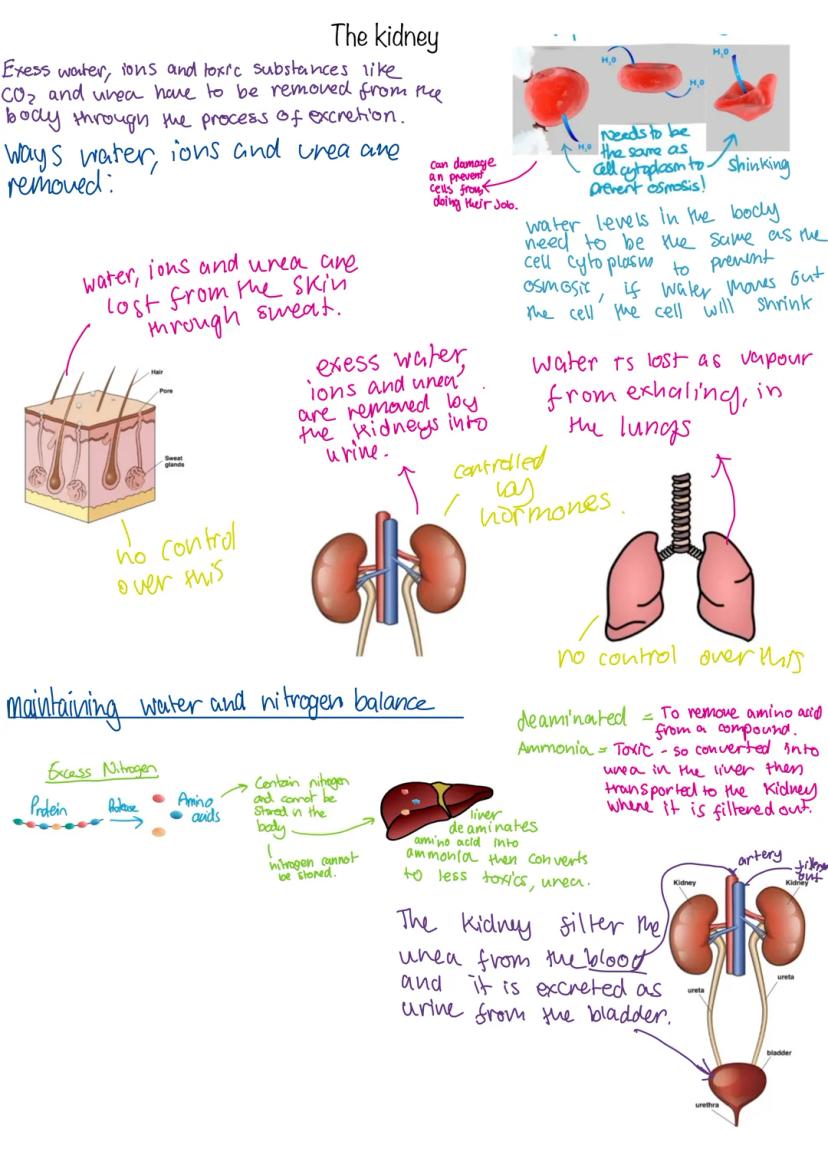 The kidney
Exess water, ions and toxic substances like
CO₂ and urea have to be removed from the
body through the process of excretion.
Ways water, ions and urea are
removed:
H₂O
H₂O
H₂O
H₂O
Needs to be
the same as
cell cytoplasm to
prevent osmosis!
Shinking
can damage
an prevent
cells from
doing their job.
water levels in the body
need to be the same as the
cell cytoplasm to prevent
osmosis, if water moves out
the cell the cell will shrink
water, ions and urea are
lost from the skin
through sweat.
Hair
Pore
Sweat
glands
no control
over this
exess water,
ions and urea
are removed by
the kidneys into
urine.
controlled
by
hormones.
Water is lost as vapour
from exhaling, in
the lungs
no control over this
maintaining water and nitrogen balance
Excess Nitrogen
Protein
Protease
Amino
acids
Contain nitrogen
and cannot be
stored in the
body
nitrogen cannot
be stored.
liver
deaminates
amino acid into
ammonia then converts
to less toxics, urea.
deaminated = To remove amino acid
from a compound.
Ammonia = Toxic - so converted into
urea in the liver then
transported to the kidney
where it is filtered out.
The kidney filter the
urea from the blood
and it is excreted as
urine from the bladder.
artery
out
Kidney
Kidney
ureta
ureta
bladder
urethra